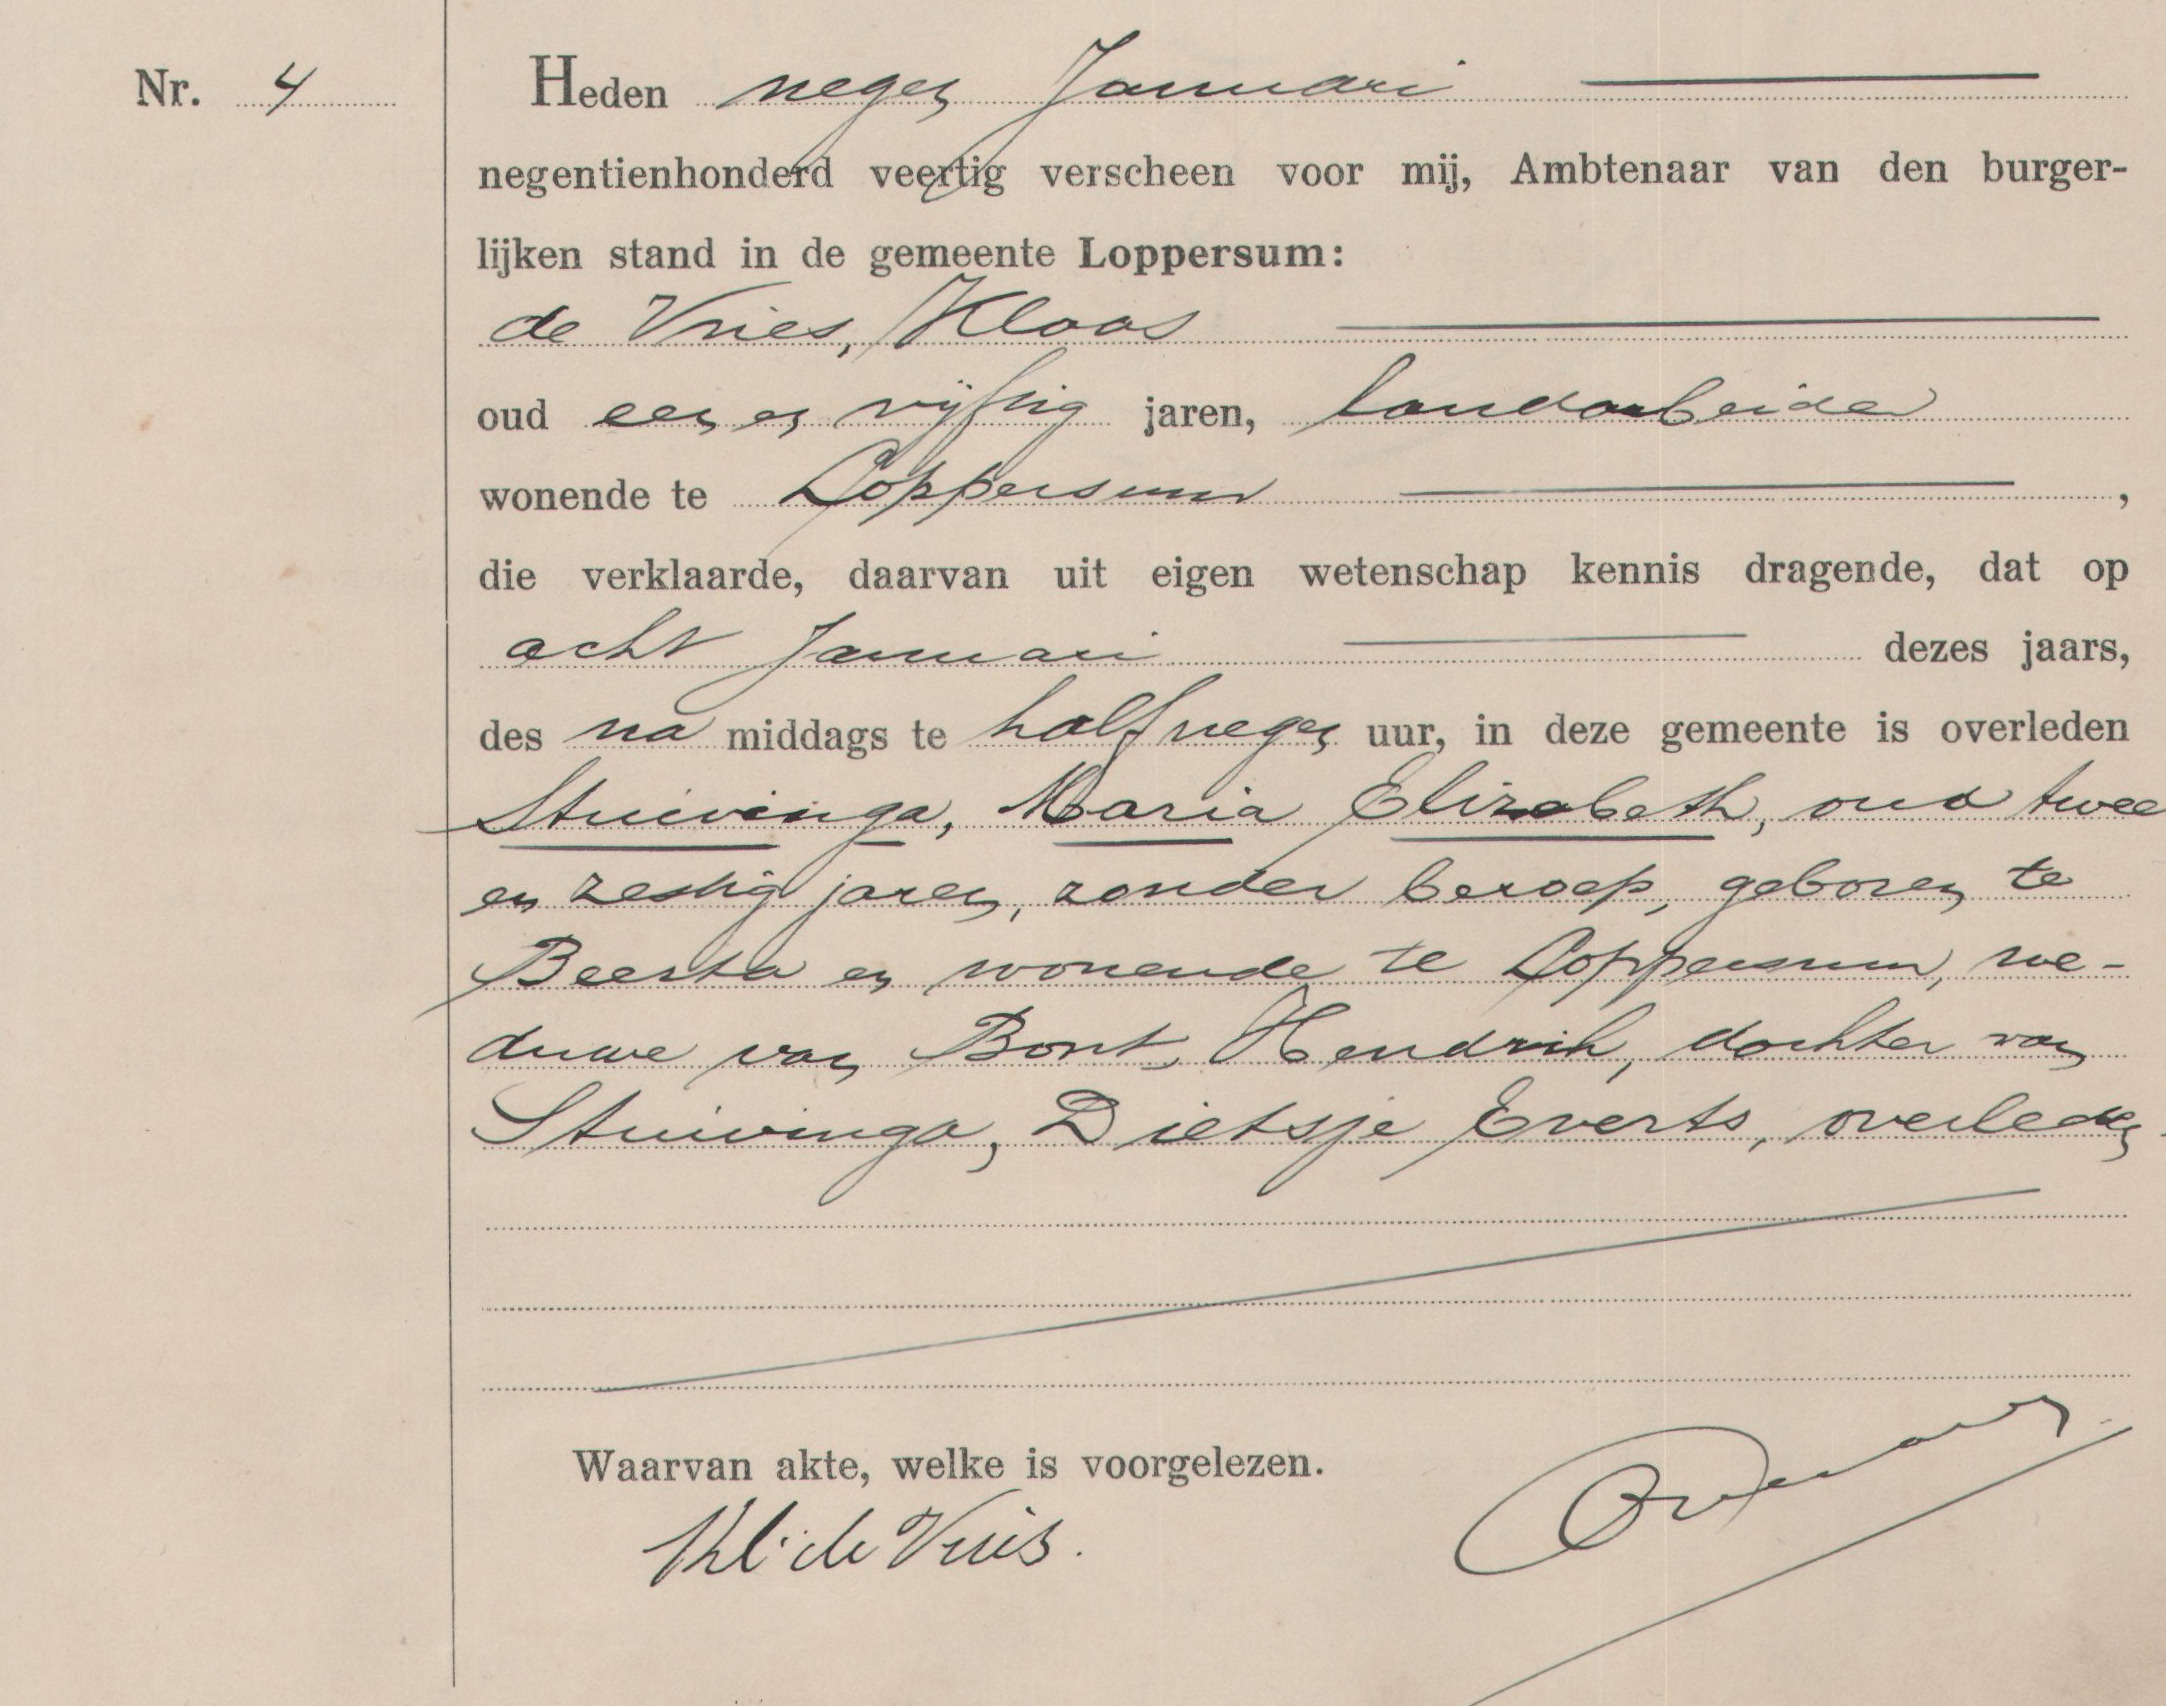 Nr. 4
Heden negen Januari
negentienhonderd veertig verscheen voor mij, Ambtenaar van den burger-
lijken stand in de gemeente Loppersum:
de Vries, Klaas
oud een en vijftig jaren, landarbeider
wonende te Loppersum ,
die verklaarde, daarvan uit eigen wetenschap kennis dragende, dat op
acht Januari dezes jaars,
des na middags te half negen uur, in deze gemeente is overleden
Stuivinga, Maria Elizabeth, oud twee
en zestig jaren, zonder beroep, geboren te
Beerta en wonende te Loppersum, we-
duwe van Bont, Hendrik, dochter van
Stuivinga, Dietsje Everts, overleden.
Waarvan akte, welke is voorgelezen.
Kl. de Vries.